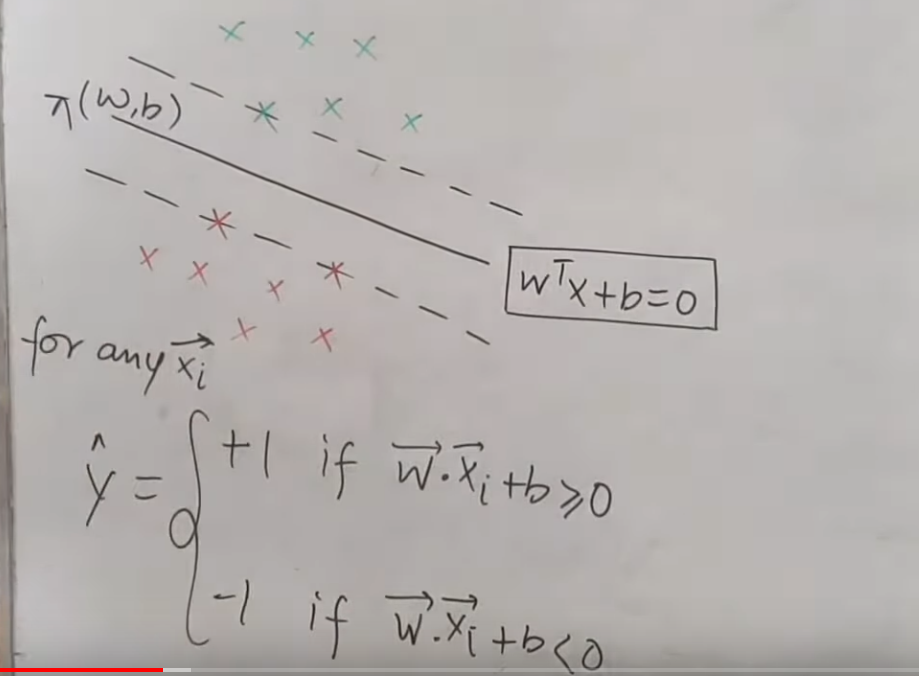 π(w,b)
wᵀx+b=0
for any x⃗ᵢ
ŷ = { +1 if w⃗.x⃗ᵢ+b≥0
-1 if w⃗.x⃗ᵢ+b<0